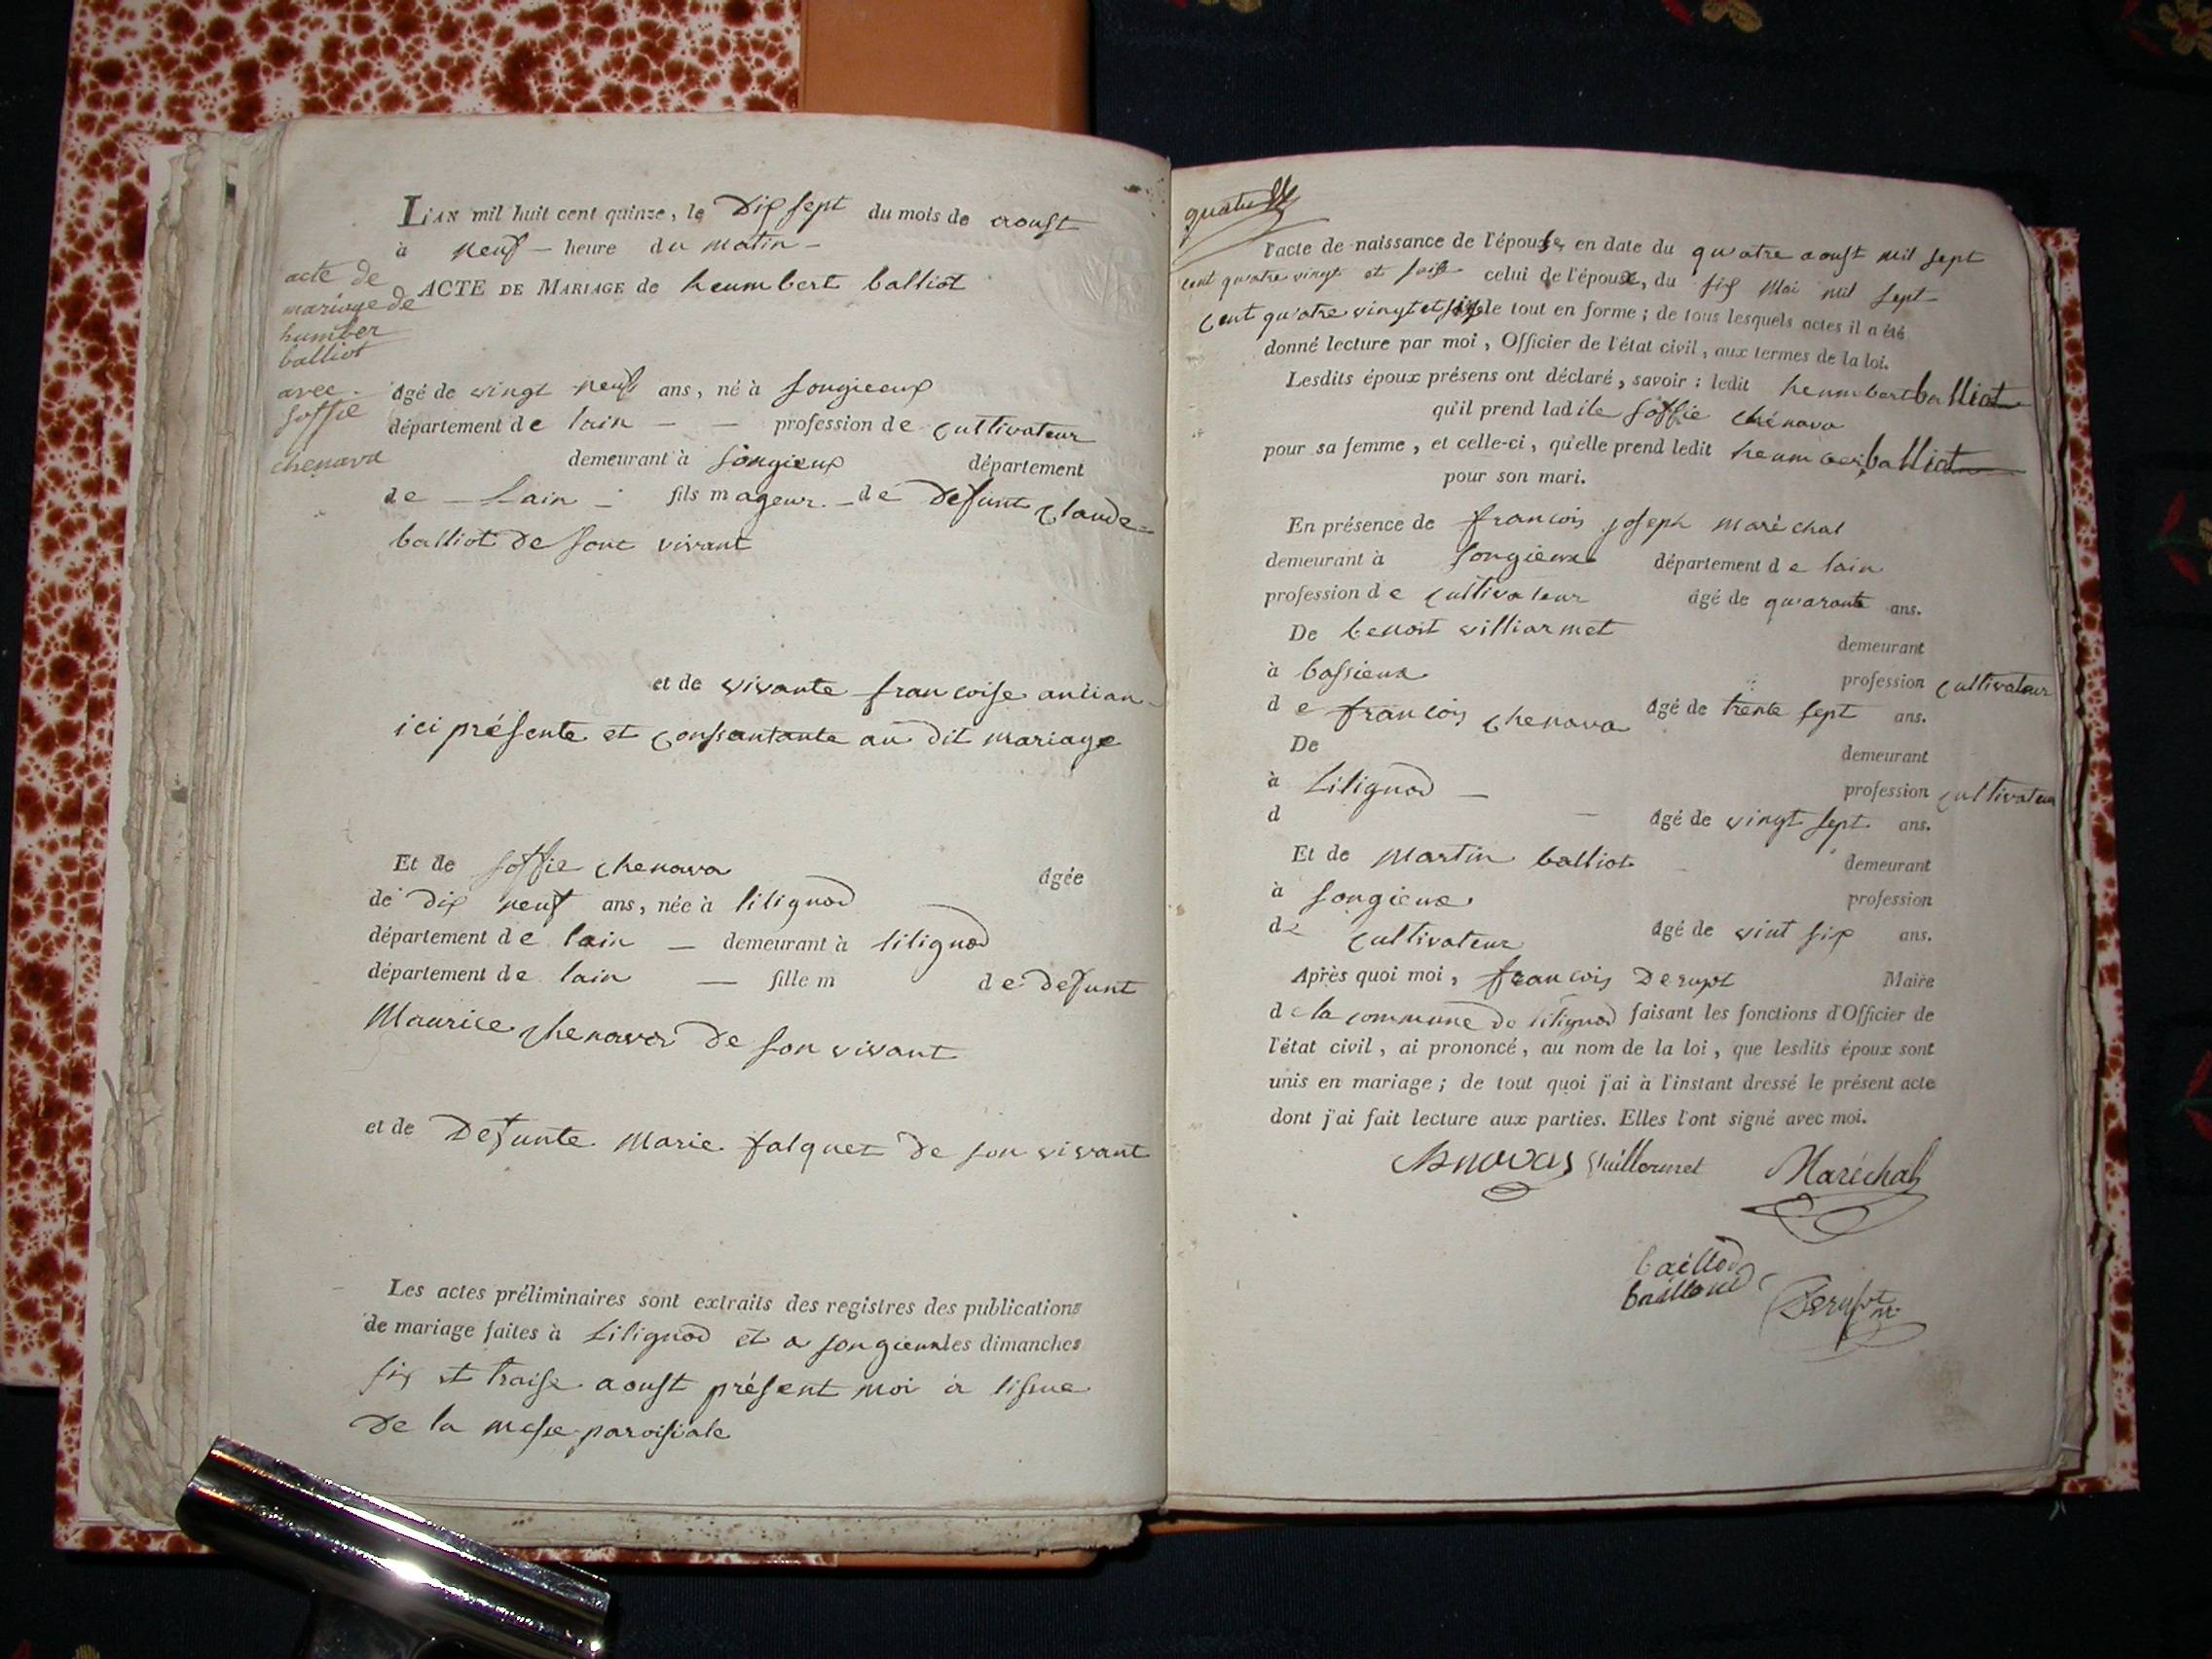 L'AN mil huit cent quinze, le Dix sept du mois de aoust
à neuf - heure du matin -
acte de
mariage de
humber
balliot
avec
soffie
chenava
ACTE DE MARIAGE de heumbert balliot
âgé de vingt neuf ans, né à songieux
département de lain - - profession de cultivateur
demeurant à songieux département
de - Lain - fils mageur - de defunt claude
balliot de sont vivant
et de vivante francoise
ici présente et consantante au dit mariage
Et de soffie chenava agée
de dix neuf ans, née à lilignod
département de lain - demeurant à lilignod
département de lain - fille m de defunt
Maurice chenava de son vivant
et de Defunte marie falquet de son vivant
Les actes préliminaires sont extraits des registres des publications
de mariage faites à Lilignod et a songieux les dimanches
six et traise aoust présent moi a lisue
de la messe paroisiale
l'acte de naissance de l'épouse, en date du quatre aoust mil sept
cent quatre vingt et saise celui de l'époux, du six mai mil sept
cent quatre vingt et six le tout en forme ; de tous lesquels actes il a été
donné lecture par moi, Officier de l'état civil, aux termes de la loi.
Lesdits époux présens ont déclaré, savoir : ledit heumbert balliot
qu'il prend ladite soffie chénava
pour sa femme, et celle-ci, qu'elle prend ledit heumber balliot
pour son mari.
En présence de francois joseph maréchal
demeurant à songieux département de lain
profession de cultivateur âgé de quarante ans.
De benoit villiarmet demeurant
à bassieux profession cultivateur
de francois chenava âgé de trente sept ans.
De demeurant
à Lilignod - profession cultivateur
d - âgé de vingt sept ans.
Et de martin balliot demeurant
à songieux profession
de cultivateur âgé de vint six ans.
Après quoi moi, francois Derupt Maire
de la commune de lilignod faisant les fonctions d'Officier de
l'état civil, ai prononcé, au nom de la loi, que lesdits époux sont
unis en mariage ; de tout quoi j'ai à l'instant dressé le présent acte
dont j'ai fait lecture aux parties. Elles l'ont signé avec moi.
Vuillermet Maréchal